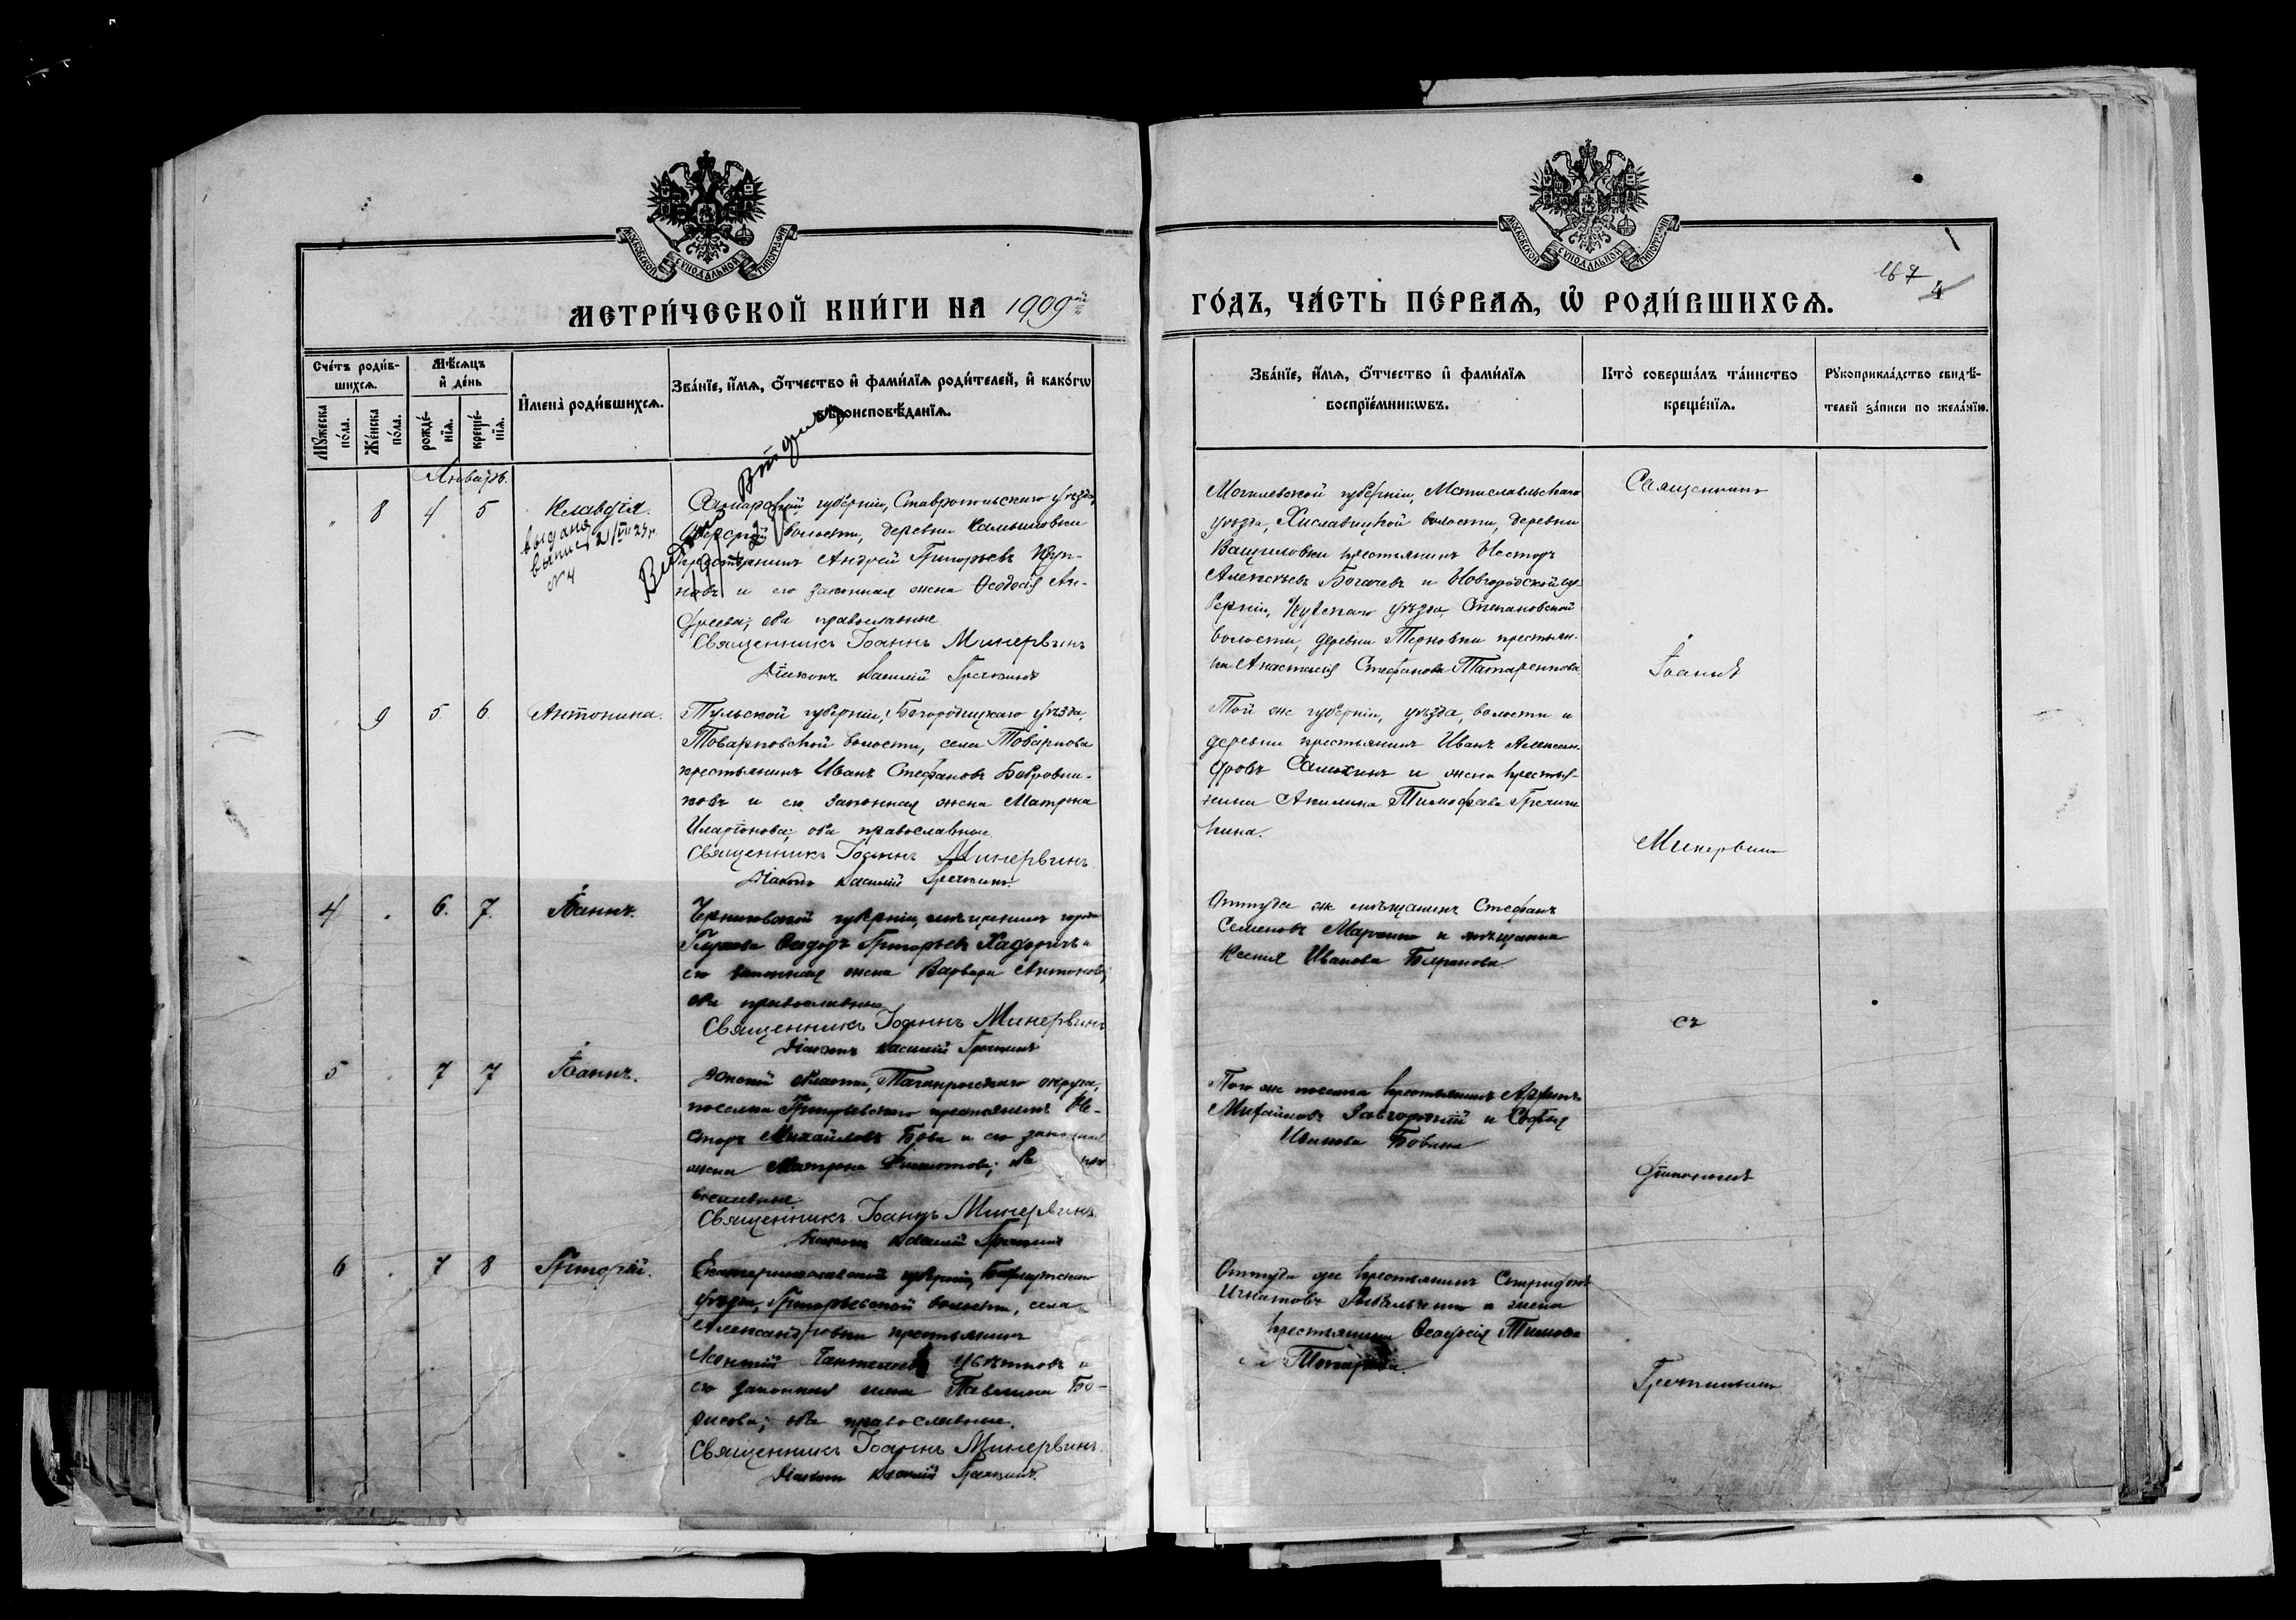 МОСКОВСКОЙ СѴНОДАЛЬНОЙ ТИПОГРАФІИ
МЕТРИ́ЧЕСКОЙ КНИ́ГИ НА 1909й
Сче́тъ роди́в-
шихсѧ.
Мꙋ́жеска
по́ла.
Же́нска
по́ла.
Мѣ́сѧцъ
и҆ де́нь
рожде́-
нїѧ.
креще́-
нїѧ.
И҆мена̀ роди́вшихсѧ.
Зва́нїе, и҆́мѧ, ѻ҆́тчество и҆ фами́лїѧ роди́телей, и҆ како́гѡ
вѣроисповѣ́данїѧ.
Январь.
8 4 5 Клавдія.
выдана
выпись
№ 4
Самарской губерніи, Ставропольскаго уѣзда,
волости, деревни Камышовки
крестьянинъ Андрей Григорьевъ Куп-
новъ и его законная жена Ѳеодосія Ан-
дреева; оба православные
Священникъ Іоаннъ Минервинъ
Діаконъ Василій Гречкинъ
9 5 6 Антонина.
Тульской губерніи, Богородицкаго уѣзда,
Товарковской волости, села Товаркова
крестьянинъ Иванъ Стефановъ Бобровни-
ковъ и его законная жена Матрона
Иларіонова; оба православные.
Священникъ Іоаннъ Минервинъ
Діаконъ Василій Гречкинъ.
4 6. 7. Іоаннъ.
Черниговской губерніи, мѣщанинъ города
Глухова Ѳеодоръ Григорьевъ и
его законная жена Варвара Антонова;
оба православные
Священникъ Іоаннъ Минервинъ
Діаконъ Василій Гречкинъ
5 7 7 Іоаннъ.
Донской области, Таганрогскаго округа,
поселка Григорьевскаго крестьянинъ Не-
сторъ Михайловъ Бова и его законная
жена Матрона оба пра
вославные
Священникъ Іоаннъ Минервинъ
Діаконъ Василій Гречкинъ
6 7 8 Григорій.
Екатеринославской губерніи, Бахмутскаго
уѣзда, Григорьевской волости, села
Александровки крестьянинъ
Цвѣтковъ и
его законная жена Павлина Бо-
рисова; оба православные.
Священникъ Іоаннъ Минервинъ.
Діаконъ Василій Гречкинъ.
МОСКОВСКОЙ СѴНОДАЛЬНОЙ ТИПОГРАФІИ
167
4
ГО́ДЪ, ЧА́СТЬ ПЕ́РВАѦ, Ѡ҆ РОДИ́ВШИХСѦ.
Зва́нїе, и҆́мѧ, ѻ҆́тчество и҆ фами́лїѧ
воспрїе́мникѡвъ.
Кто̀ соверша́лъ та́инство
креще́нїѧ.
Рꙋкоприкла́дство свидѣ́-
телей за́писи по жела́нїю.
Могилевской губерніи, Мстиславльскаго
уѣзда, Хиславицкой волости, деревни
крестьянинъ Несторъ
Алексѣевъ Богачевъ и Новгородской гу-
берніи, уѣзда, Степановской
волости, деревни Терновки крестьян-
ка Анастасія Стефанова Татаренкова
Священникъ
Іоаннъ
Той же губерніи, уѣзда, волости и
деревни крестьянинъ Иванъ Алексан-
дровъ Самохинъ и жена крестья-
нина Акилина Тимофеева
Минервинъ
Оттуда же мѣщанинъ Стефанъ
Семеновъ Марченко и мѣщанка
Ксенія Иванова Баранова.
съ
Того же поселка крестьянинъ
Михайловъ Завгородній и Софья
Иванова Бовина
діакономъ
Оттуда же крестьянинъ Спиридонъ
Игнатовъ и жена
крестьянина Ѳеодосія
Гречкинымъ